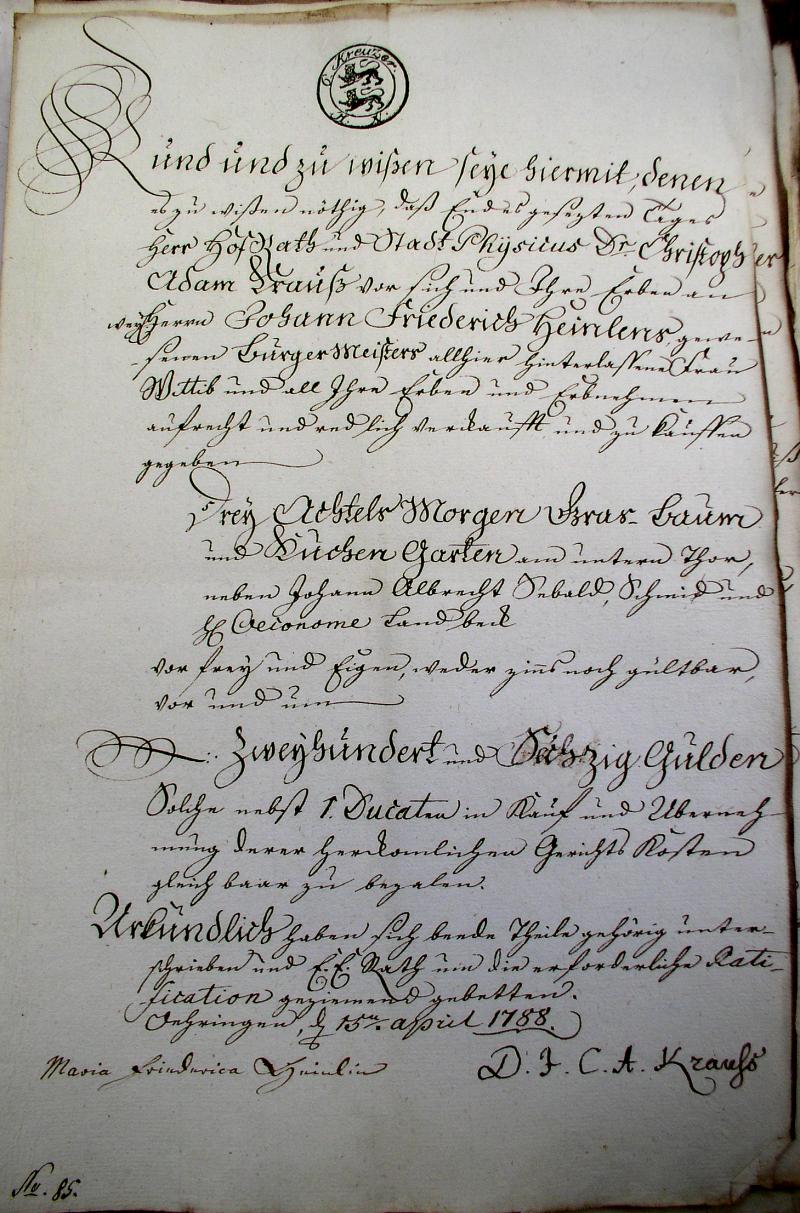 6. Kreuzer.
H. N.
Kund und zu wißen seye hiermit, denen
es zu wißen nöthig, daß Endes gesezten Tages
Herr Hof Rath und Stadt Physicus Dr. Christoph
Adam Krauß vor sich und Ihre Erben an
weyl. Herrn Johann Friederich Heinlens, gewe-
senen BürgerMeisters allhier hinterlassene Frau
Wittib und all Ihre Erben und Erbnehmen
aufrecht und redlich verkaufft und zu kauffen
gegeben
Drey Achtels Morgen Gras- Baum
und Küchen Garten am untern Thor,
neben Johann Albrecht Sebald, Schmid und
H. Oeconome Landbeck
vor frey und Eigen, weder zins noch gültbar,
vor und um
Zweyhundert und Sechzig Gulden
Solche nebst 1. Ducaten in Kauf und Uberneh-
mung derer herkomlichen Gerichts Kosten
gleich baar zu bezalen.
Urkundlich haben sich beede Theile gehörig unter-
schrieben und E. E. Rath um die erforderliche Rati-
fication geziemend gebetten.
Oehringen, d. 15ten april 1788.
Maria Friederica Heinlin
D. F. C. A. Krauß
No. 85.